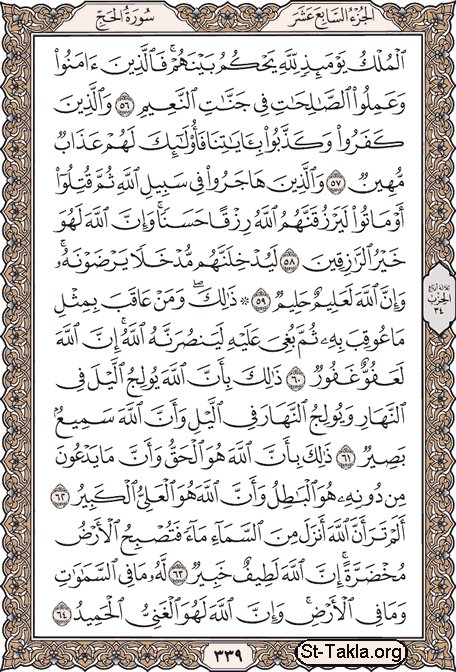 الجزء السابع عشر
سورة الحج
الْمُلْكُ يَوْمَئِذٍ لِّلَّهِ يَحْكُمُ بَيْنَهُمْ ۚ فَالَّذِينَ ءَامَنُوا
وَعَمِلُوا الصَّالِحَاتِ فِي جَنَّاتِ النَّعِيمِ ٥٦ وَالَّذِينَ
كَفَرُوا وَكَذَّبُوا بِـَٔايَاتِنَا فَأُولَٰئِكَ لَهُمْ عَذَابٌ
مُّهِينٌ ٥٧ وَالَّذِينَ هَاجَرُوا فِي سَبِيلِ اللَّهِ ثُمَّ قُتِلُوا
أَوْ مَاتُوا لَيَرْزُقَنَّهُمُ اللَّهُ رِزْقًا حَسَنًا ۚ وَإِنَّ اللَّهَ لَهُوَ
خَيْرُ الرَّازِقِينَ ٥٨ لَيُدْخِلَنَّهُم مُّدْخَلًا يَرْضَوْنَهُ ۗ
وَإِنَّ اللَّهَ لَعَلِيمٌ حَلِيمٌ ٥٩ ۞ ذَٰلِكَ ۖ وَمَنْ عَاقَبَ بِمِثْلِ
مَا عُوقِبَ بِهِ ثُمَّ بُغِيَ عَلَيْهِ لَيَنصُرَنَّهُ اللَّهُ ۗ إِنَّ اللَّهَ
لَعَفُوٌّ غَفُورٌ ٦٠ ذَٰلِكَ بِأَنَّ اللَّهَ يُولِجُ الَّيْلَ فِي
النَّهَارِ وَيُولِجُ النَّهَارَ فِي الَّيْلِ وَأَنَّ اللَّهَ سَمِيعٌ
بَصِيرٌ ٦١ ذَٰلِكَ بِأَنَّ اللَّهَ هُوَ الْحَقُّ وَأَنَّ مَا يَدْعُونَ
مِن دُونِهِ هُوَ الْبَاطِلُ وَأَنَّ اللَّهَ هُوَ الْعَلِيُّ الْكَبِيرُ ٦٢
أَلَمْ تَرَ أَنَّ اللَّهَ أَنزَلَ مِنَ السَّمَاءِ مَاءً فَتُصْبِحُ الْأَرْضُ
مُخْضَرَّةً ۗ إِنَّ اللَّهَ لَطِيفٌ خَبِيرٌ ٦٣ لَّهُ مَا فِي السَّمَاوَاتِ
وَمَا فِي الْأَرْضِ ۗ وَإِنَّ اللَّهَ لَهُوَ الْغَنِيُّ الْحَمِيدُ ٦٤
ثلاثة أرباع
الحزب
٣٤
٣٣٩
St-Takla.org